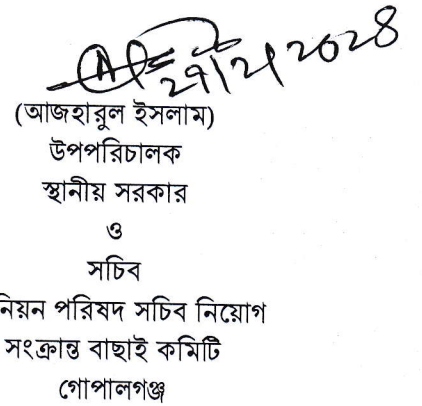 ২৭/২/২০২৪
(আজহারুল ইসলাম)
উপপরিচালক
স্থানীয় সরকার
ও
সচিব
নিয়ন পরিষদ সচিব নিয়োগ
সংক্রান্ত বাছাই কমিটি
গোপালগঞ্জ